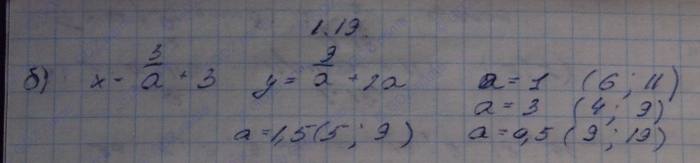 1.19.
б) x - 3/a + 3   y = 9/a + 2a   a = 1 (6 ; 11)
a = 3 (4 ; 9)
a = 1,5 (5 ; 9)   a = 0,5 (9 ; 19)